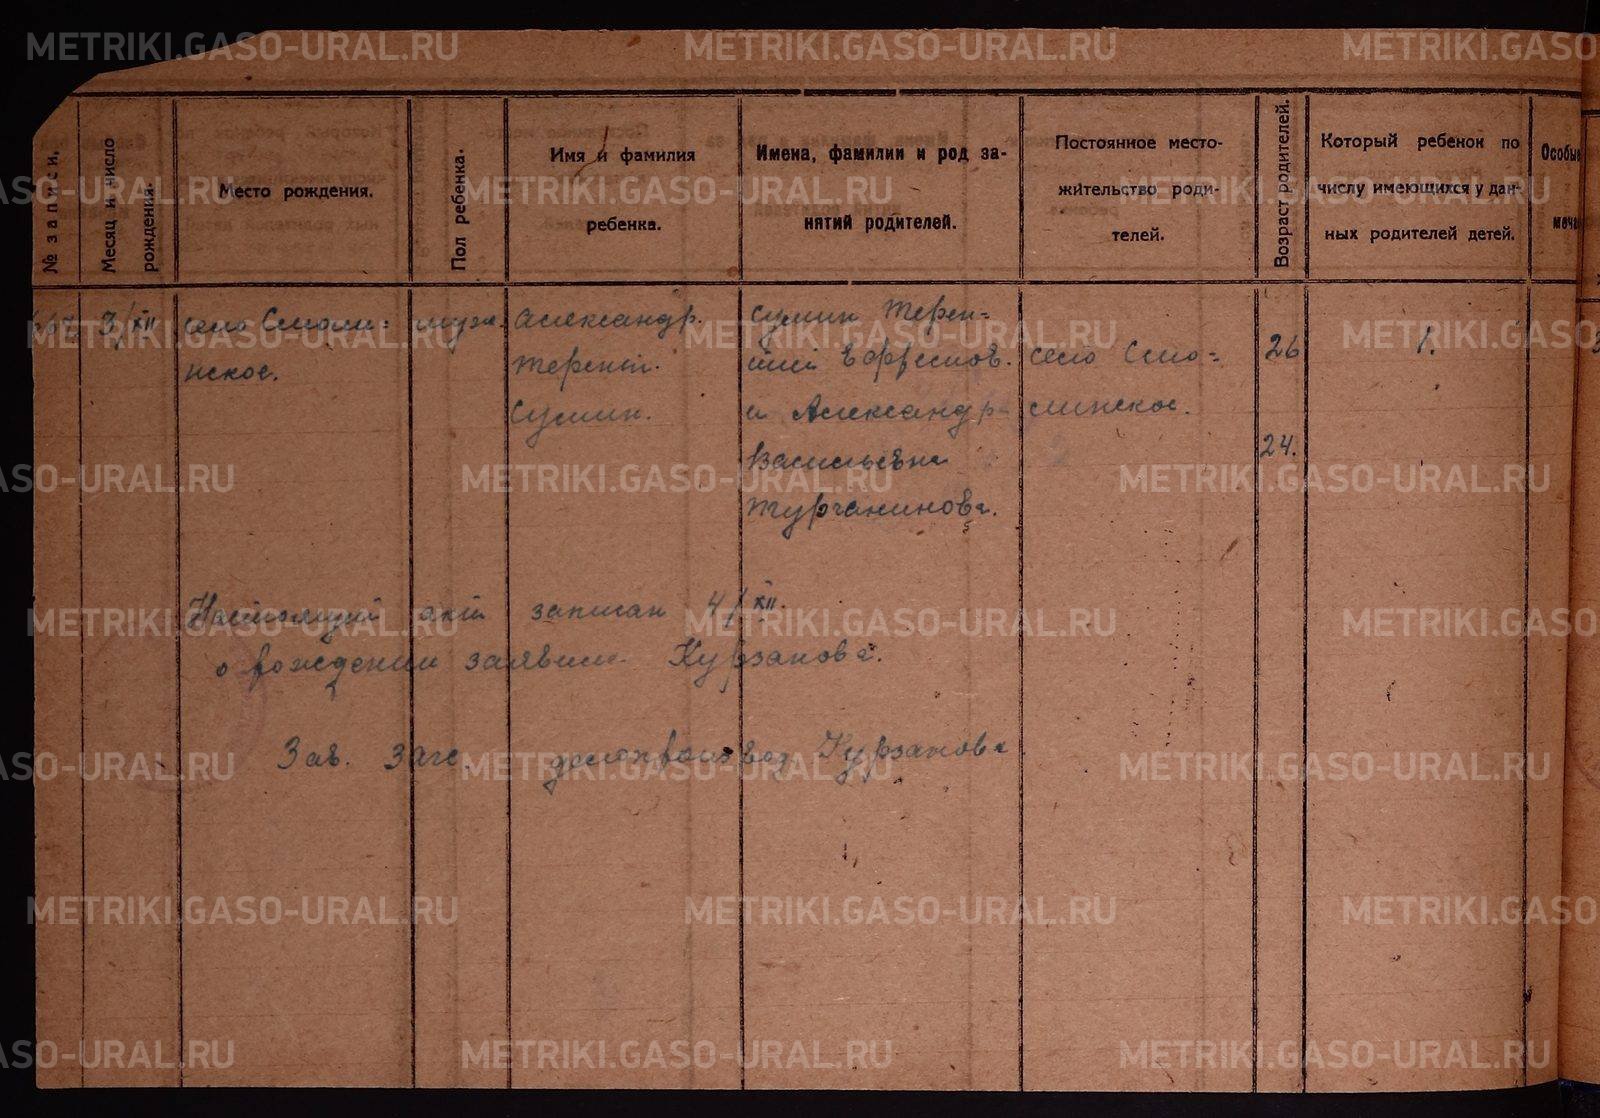 METRIKI.GASO-URAL.RU
№ записи.
Месяц и число рождения.
Место рождения.
Пол ребенка.
Имя и фамилия
ребенка.
Имена, фамилии и род за-
нятий родителей.
Постоянное место-
жительство роди-
телей.
Возраст родителей.
Который ребенок по
числу имеющихся у дан-
ных родителей детей.
Особые
3/XII
село Смоли=
нское.
муж.
Александр.
Терентий.
Сумин.
Сумин Терен=
тий
и Александр-
Васильевна
Турчанинова.
село Смо=
линское.
26
24.
1.
Настоящий акт записан 4/XII.
о рождении заявила Курзанова.
Зав. Загс. делопроизвод. Курзанова